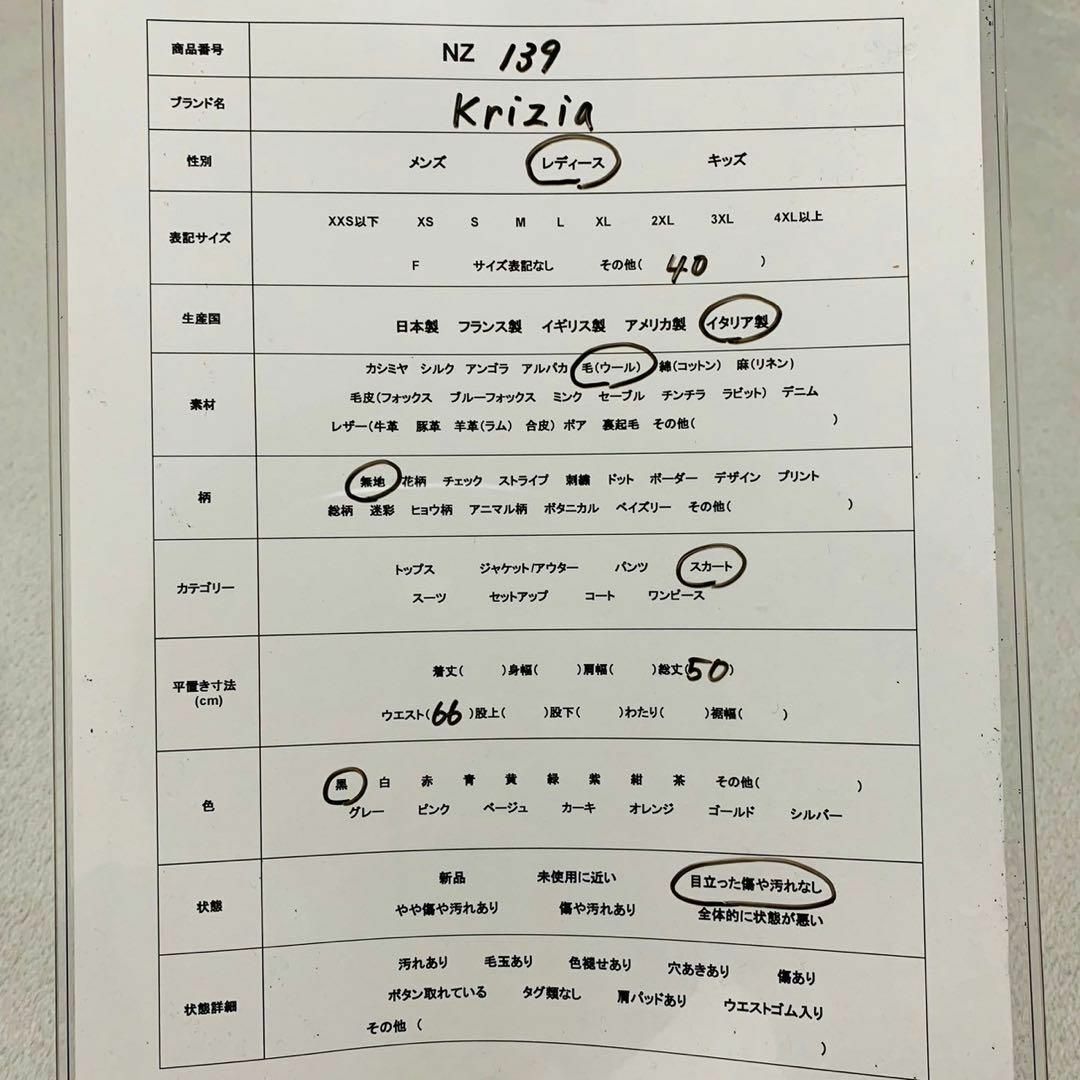 商品番号 NZ 139
ブランド名 Krizia
性別 メンズ レディース キッズ
表記サイズ
XXS以下 XS S M L XL 2XL 3XL 4XL以上
F サイズ表記なし その他( 40 )
生産国 日本製 フランス製 イギリス製 アメリカ製 イタリア製
素材
カシミヤ シルク アンゴラ アルパカ 毛(ウール) 綿(コットン) 麻(リネン)
毛皮(フォックス ブルーフォックス ミンク セーブル チンチラ ラビット) デニム
レザー(牛革 豚革 羊革(ラム) 合皮) ボア 裏起毛 その他( )
柄
無地 花柄 チェック ストライプ 刺繍 ドット ボーダー デザイン プリント
総柄 迷彩 ヒョウ柄 アニマル柄 ボタニカル ペイズリー その他( )
カテゴリー
トップス ジャケット/アウター パンツ スカート
スーツ セットアップ コート ワンピース
平置き寸法
(cm)
着丈( )身幅( )肩幅( )総丈(50)
ウエスト(66)股上( )股下( )わたり( )裾幅( )
色
黒 白 赤 青 黄 緑 紫 紺 茶 その他( )
グレー ピンク ベージュ カーキ オレンジ ゴールド シルバー
状態
新品 未使用に近い 目立った傷や汚れなし
やや傷や汚れあり 傷や汚れあり 全体的に状態が悪い
状態詳細
汚れあり 毛玉あり 色褪せあり 穴あきあり 傷あり
ボタン取れている タグ類なし 肩パッドあり ウエストゴム入り
その他 ( )